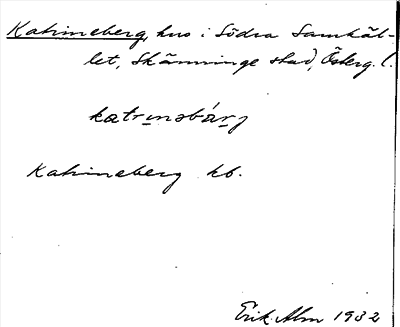 Katrineberg, hus i Södra Samhäl-
let, Skänninge stad, Österg. l.
katrınəbárj
Katrineberg kb.
Erik Alm 1932